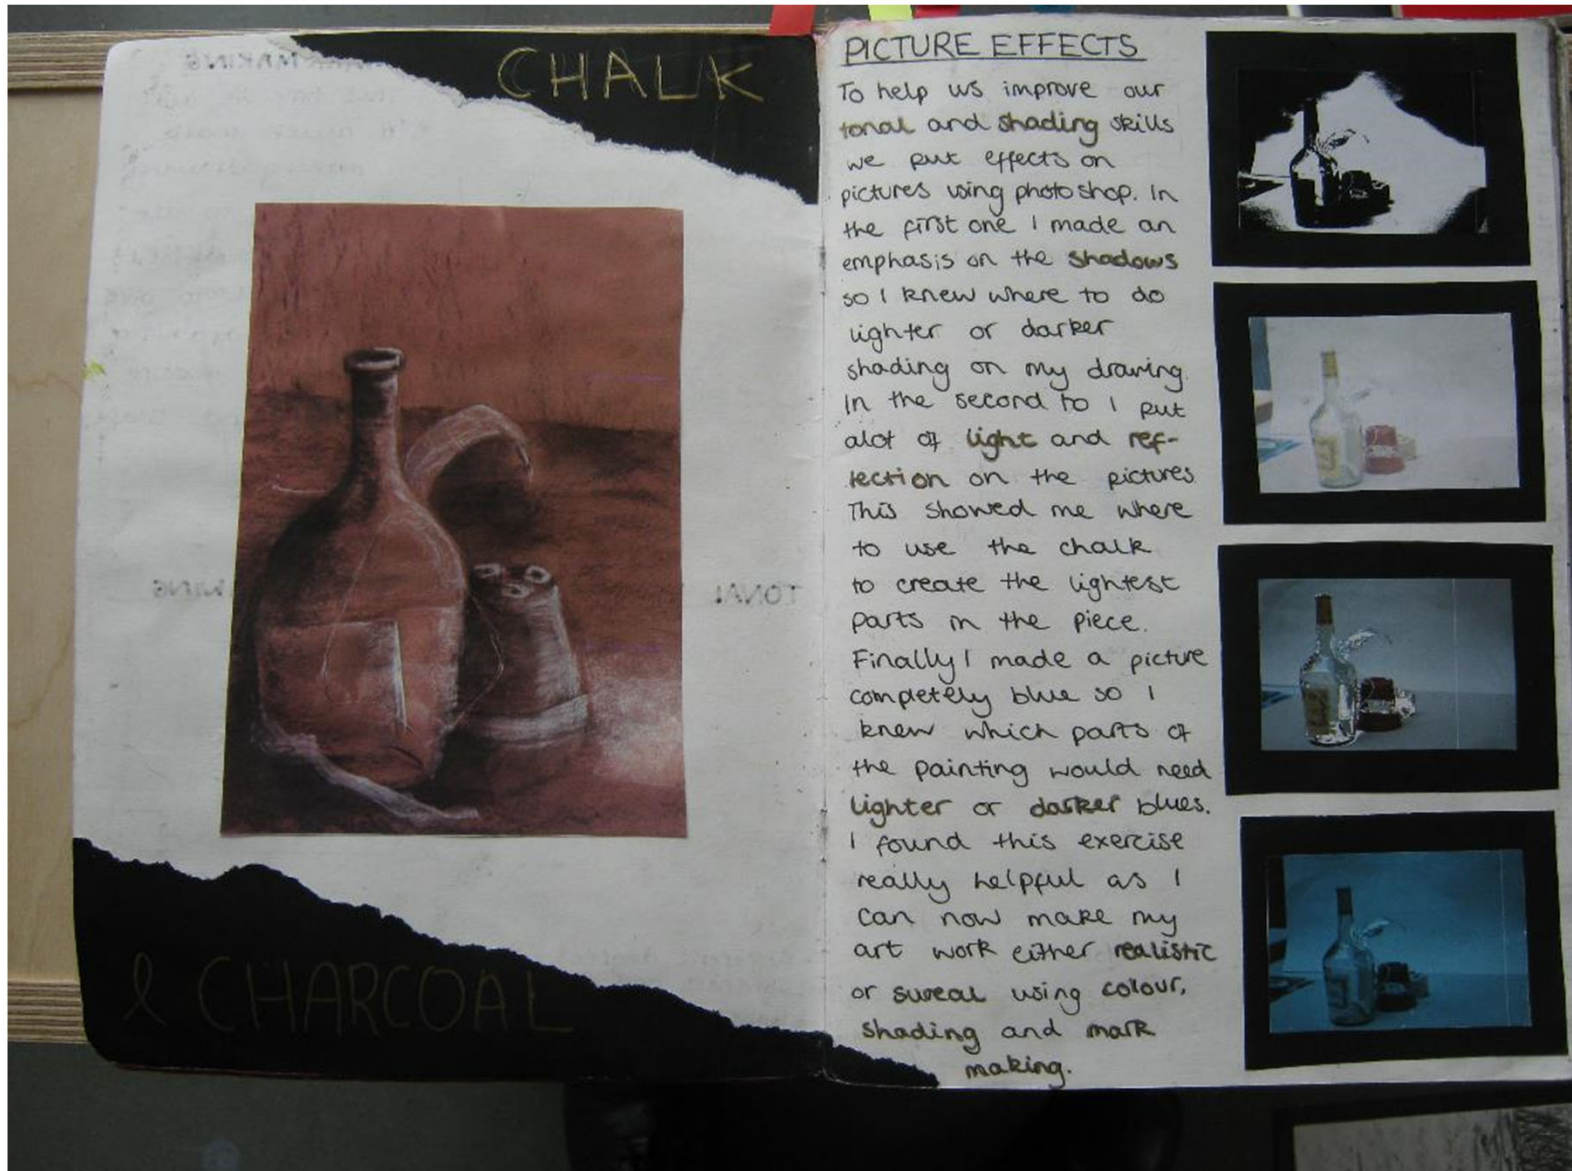 CHALK
& CHARCOAL
TONAL
PICTURE EFFECTS
To help us improve our
tonal and shading skills
we put effects on
pictures using photoshop. In
the first one I made an
emphasis on the shadows
so I knew where to do
lighter or darker
shading on my drawing.
In the second to I put
alot of light and ref-
lection on the pictures
This showed me where
to use the chalk
to create the lightest
parts in the piece.
Finally I made a picture
completely blue so I
knew which parts of
the painting would need
lighter or darker blues.
I found this exercise
really helpful as I
can now make my
art work either realistic
or sureal using colour,
shading and mark
making.